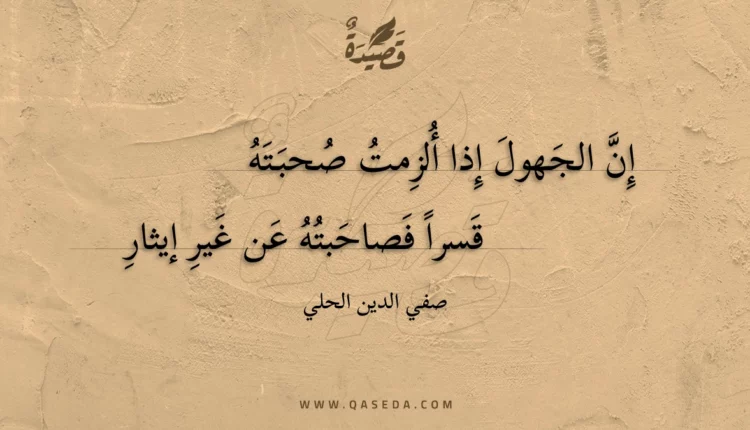 قَصِيْدَةٌ
إِنَّ الجَهولَ إِذا أُلزِمتُ صُحبَتَهُ
قَسراً فَصاحَبتُهُ عَن غَيرِ إيثارِ
صفي الدين الحلي
WWW.QASEDA.COM